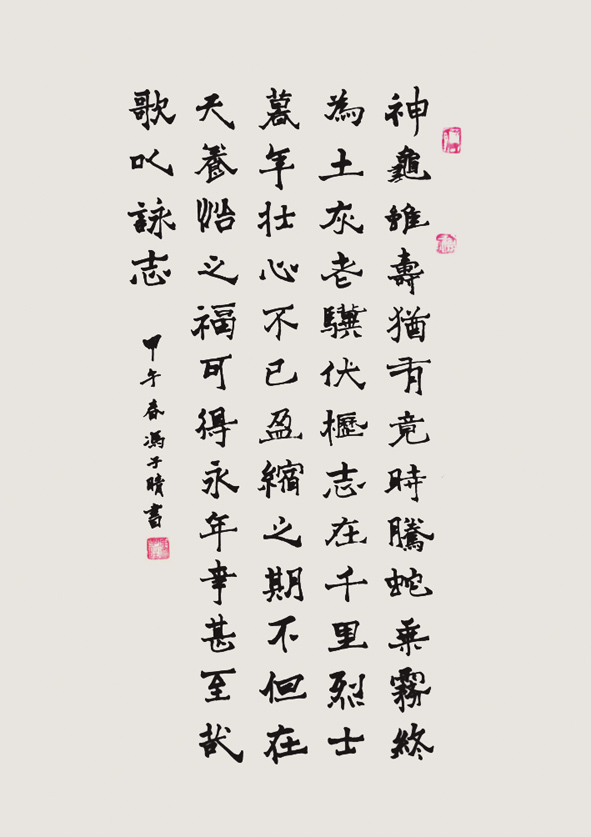 神龜雖壽猶有竟時騰蛇乗霧終
為土灰老驥伏櫪志在千里烈士
暮年壯心不已盈縮之期不但在
天養怡之福可得永年幸甚至哉
歌以詠志
甲午春馮子晴書